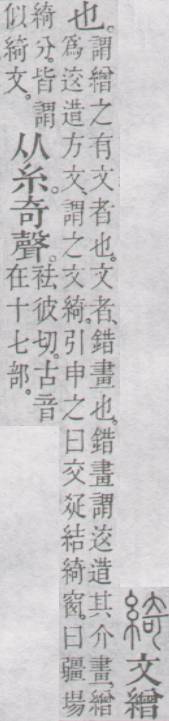 綺 文繒
也。
謂繒之有文者也。文者、錯畫也。錯畫謂䢒造其介畫。繒
爲䢒造方文。謂之文綺。引申之曰交疏結綺窗。曰疆場
綺分。皆謂
似綺文。
从糸。奇聲。
袪彼切。古音
在十七部。